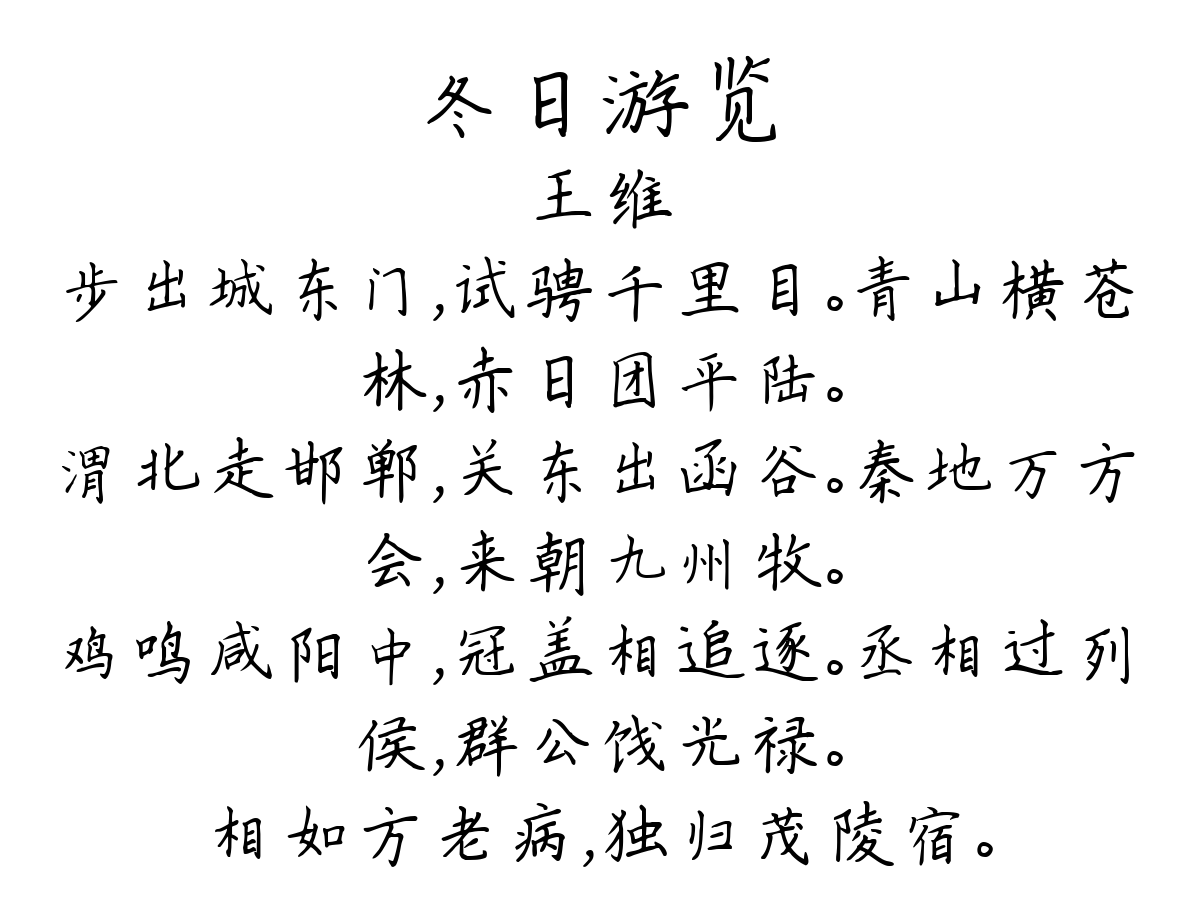 冬日游览
王维
步出城东门,试骋千里目。青山横苍
林,赤日团平陆。
渭北走邯郸,关东出函谷。秦地万方
会,来朝九州牧。
鸡鸣咸阳中,冠盖相追逐。丞相过列
侯,群公饯光禄。
相如方老病,独归茂陵宿。